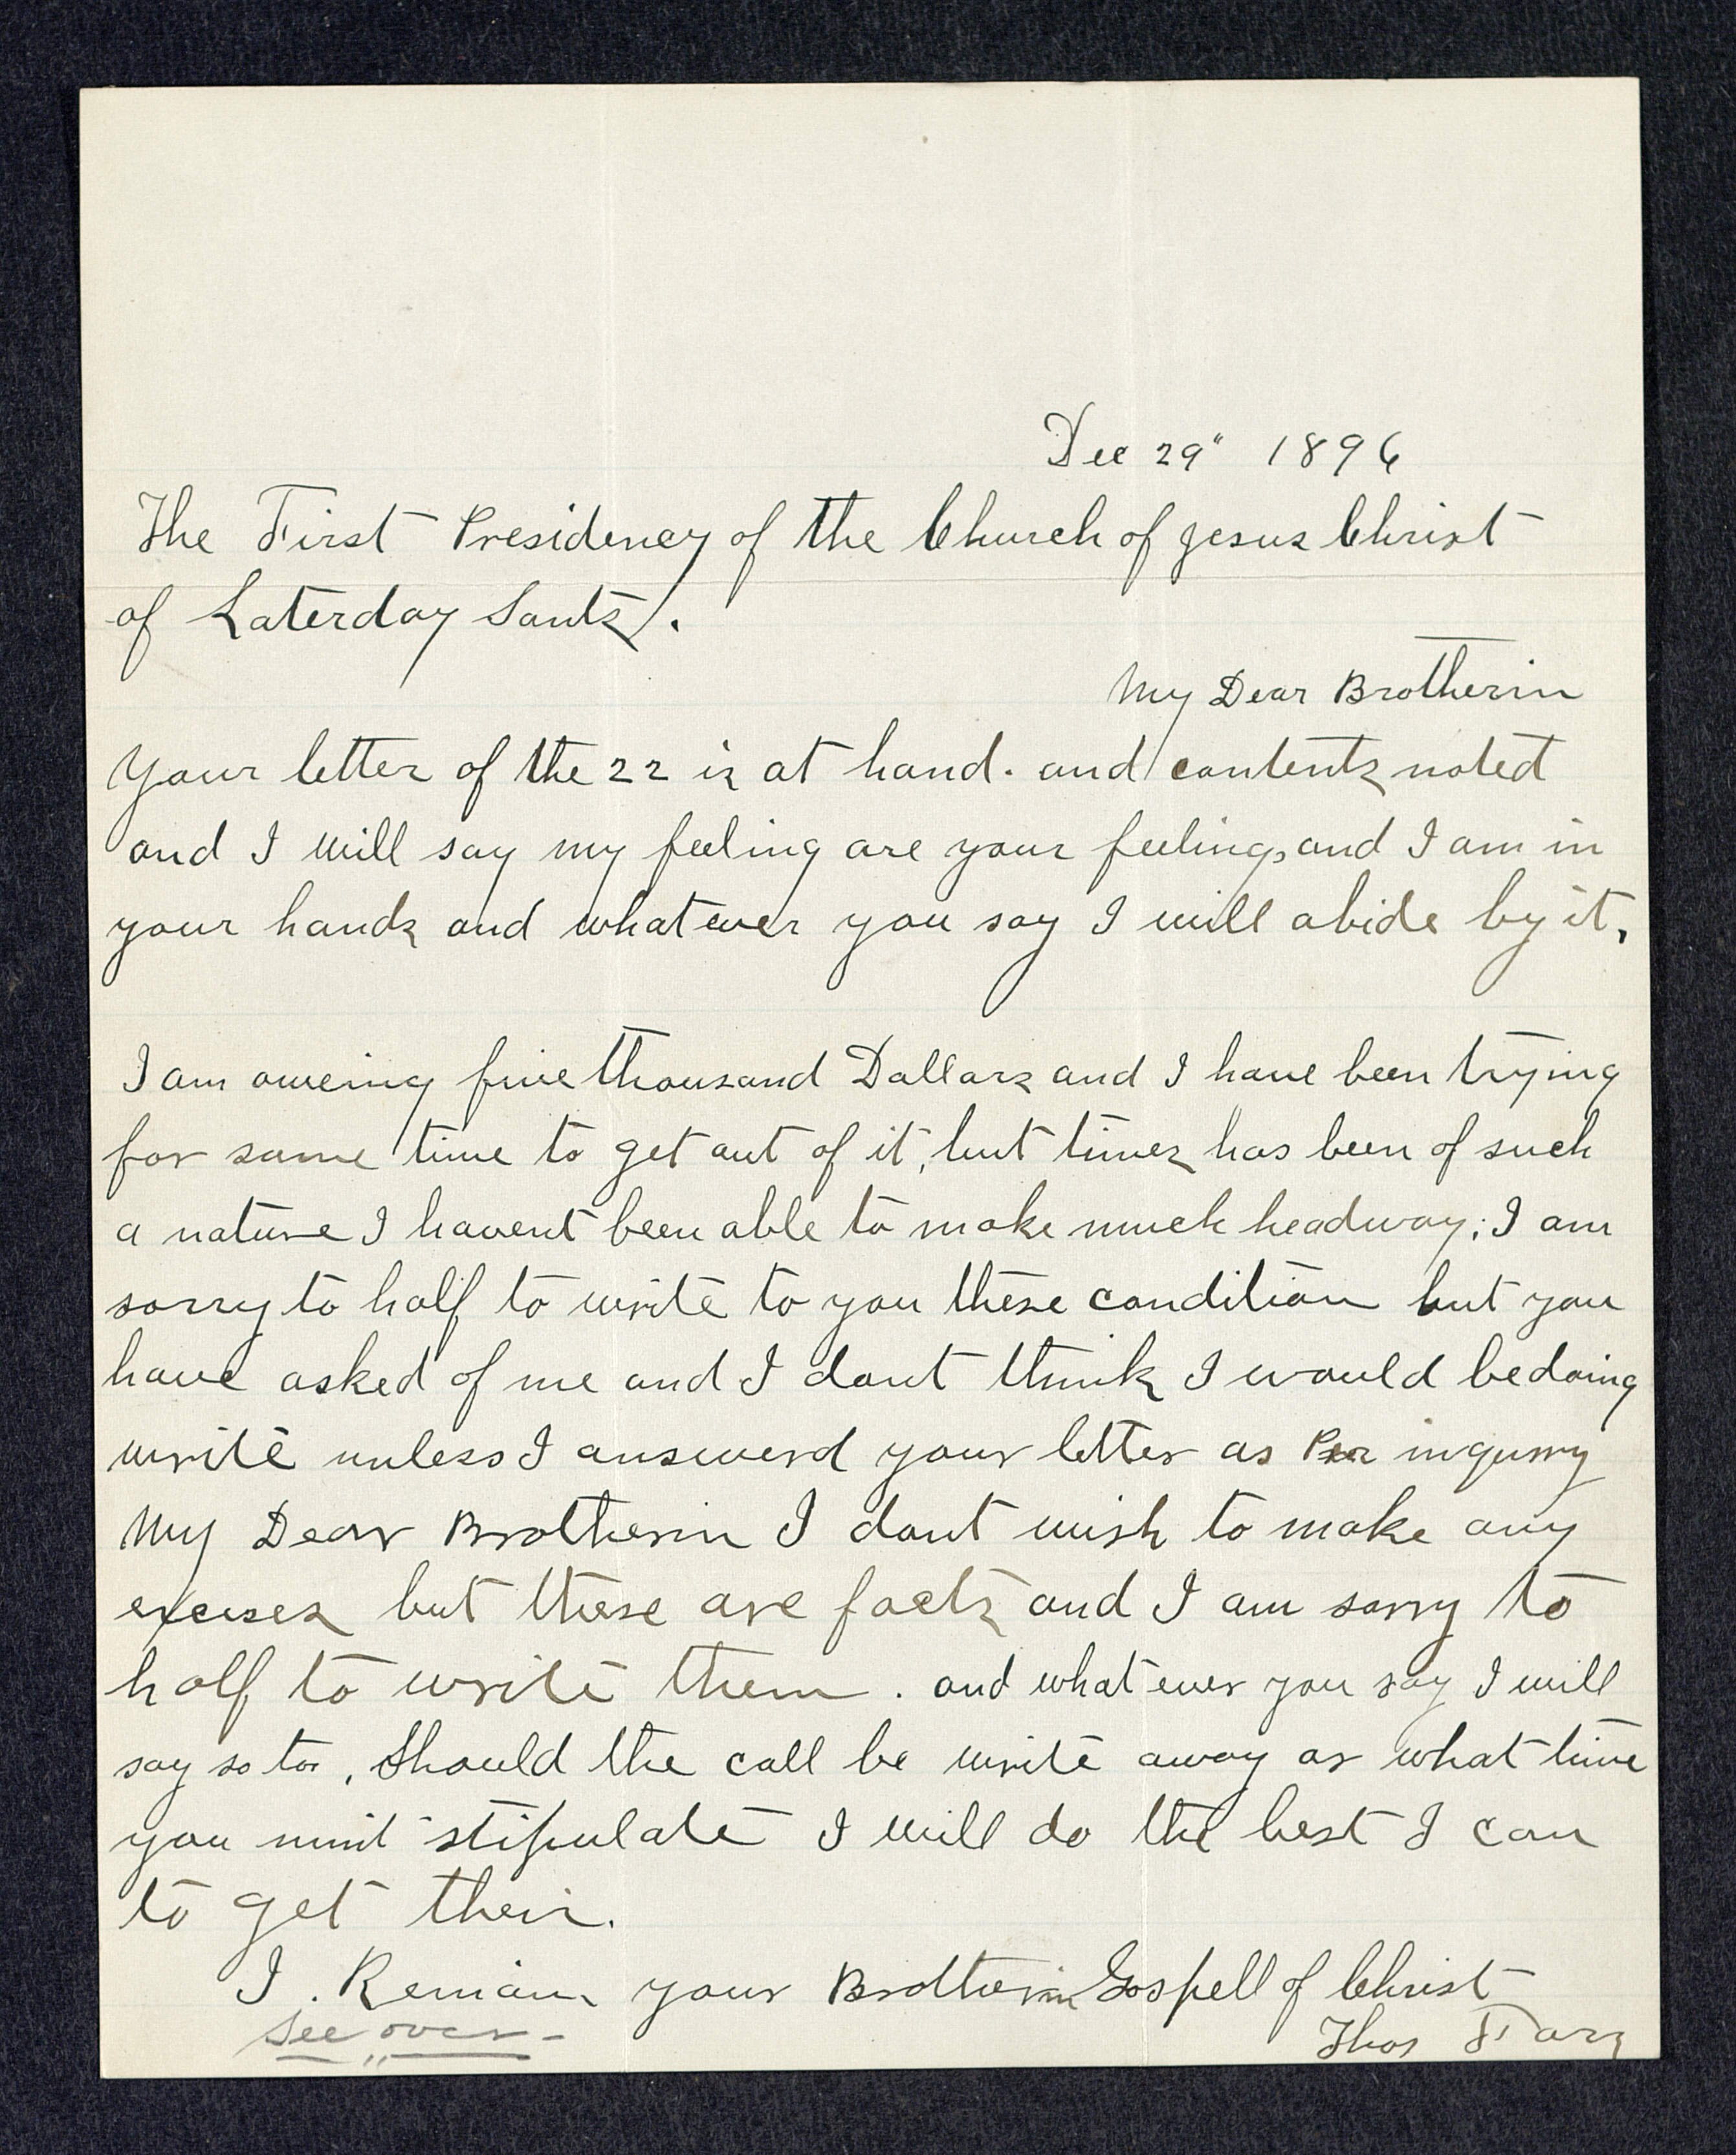 Dec 29" 1896
The First Presidency of the Church of Jesus Christ
of Laterday Sants.
My Dear Brotherin
Your letter of the 22 is at hand. and contents noted
and I will say my feeling are your feeling, and I am in
your hands and whatever you say I will abide by it,
I am oweing five thousand Dollars and I have been trying
for some time to get out of it, but times has been of such
a nature I havent been able to make much headway; I am
sorry to half to write to you these condition but you
have asked of me and I dont think I would be doing
write unless I answerd your letter as Per inqurry
My Dear Brotherin I dont wish to make any
excuses but these are facts and I am sorry to
half to write them. and what ever you say I will
say so to, Should the call be write away or what time
you mint stipulate I will do the best I can
to get their.
I. Remain your Brotherin Gospell of Christ
Thos Farr
See over-